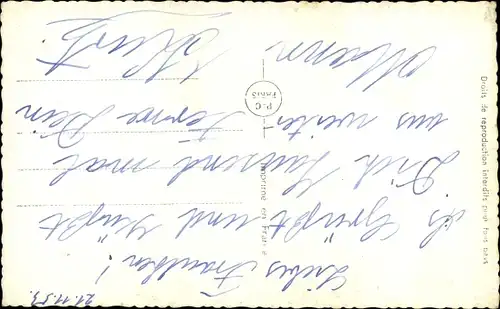 21.11.53.
Liebes Frauchen!
es Grüßt und Küßt
Dich Tausend mal
aus weiter Ferne Dein
Mann
Kurt
P-C
PARIS
Imprimé en France
Droits de reproduction interdits pour tous pays